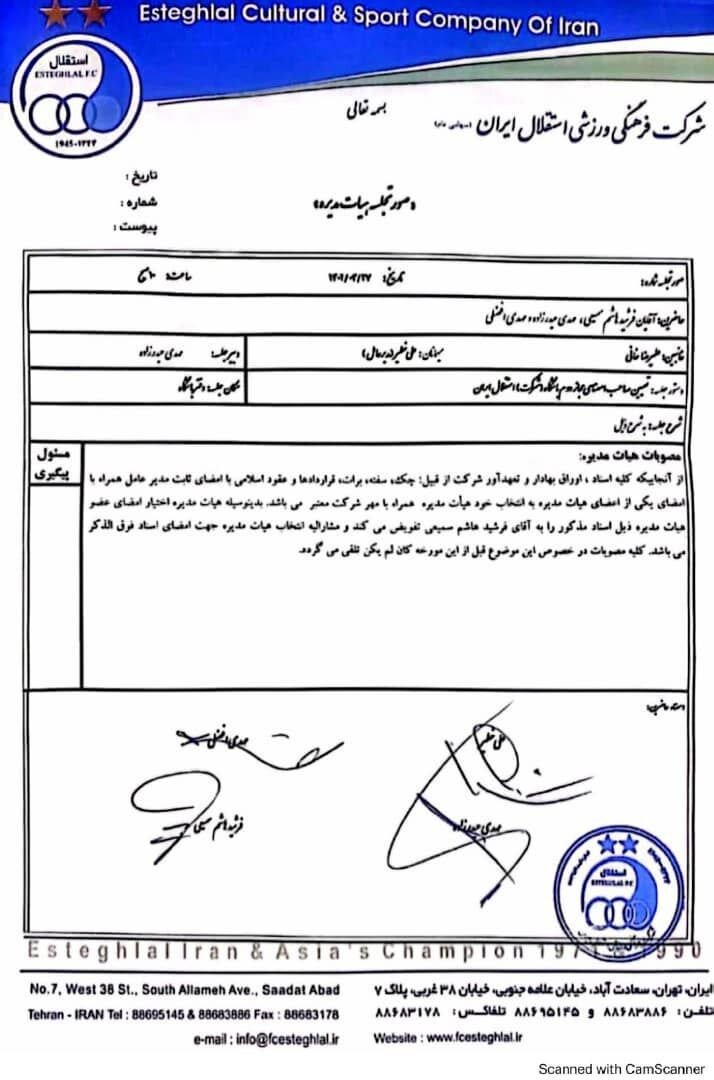 Esteghlal Cultural & Sport Company Of Iran
استقلال
ESTEGHLAL F.C
۱۹۴۵-۱۳۲۴
بسمه تعالی
شرکت فرهنگی ورزشی استقلال ایران (سهامی عام)
تاریخ :
شماره :
پیوست :
«صورتجلسه هیات مدیره»
صورتجلسه شماره: تاریخ: ساعت: ۱۰ صبح
حاضرین: آقایان فرشید هاشم سمیعی، مهدی حیدرزاده، مهدی افضلی
غایبین: علیرضا خانی میهمان: علی خطیر (مدیرعامل) دبیر جلسه: مهدی حیدرزاده
دستور جلسه: تعیین صاحب امضای مجاز دوم باشگاه (شرکت) استقلال ایران مکان جلسه: دفتر باشگاه
شرح جلسه: به شرح ذیل
مصوبات هیات مدیره:
مسئول پیگیری
از آنجاییکه کلیه اسناد ، اوراق بهادار و تعهدآور شرکت از قبیل: چک، سفته، برات، قراردادها و عقود اسلامی با امضای ثابت مدیر عامل همراه با
امضای یکی از اعضای هیات مدیره به انتخاب خود هیأت مدیره همراه با مهر شرکت معتبر می باشد. بدینوسیله هیات مدیره اختیار امضای عضو
هیات مدیره ذیل اسناد مذکور را به آقای فرشید هاشم سمیعی تفویض می کند و مشارالیه انتخاب هیات مدیره جهت امضای اسناد فوق الذکر
می باشد. کلیه مصوبات در خصوص این موضوع قبل از این مورخه کان لم یکن تلقی می گردد.
علی خطیر
مهدی افضلی
مهدی حیدرزاده
فرشید هاشم سمیعی
استقلال
ESTEGHLAL F.C
Esteghlal Iran & Asia's Champion 1971 & 1990
ایران، تهران، سعادت آباد، خیابان علامه جنوبی، خیابان ۳۸ غربی، پلاک ۷
تلفن: ۸۸۶۸۳۸۸۶ و ۸۸۶۹۵۱۴۵ تلفاکس: ۸۸۶۸۳۱۷۸
Website : www.fcesteghlal.ir
No.7, West 38 St., South Allameh Ave., Saadat Abad
Tehran - IRAN Tel : 88695145 & 88683886 Fax : 88683178
e-mail : info@fcesteghlal.ir
Scanned with CamScanner